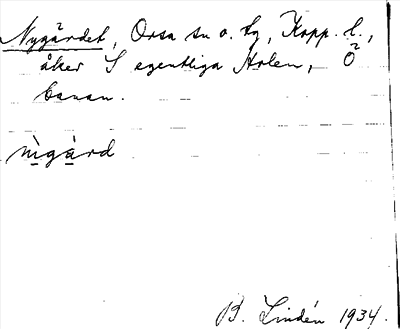 Nygärdet, Orsa sn o. tg, Kopp. l.,
åker S egentliga Holen, Ö
banan.
nìgàrd
B. Lindén 1934.